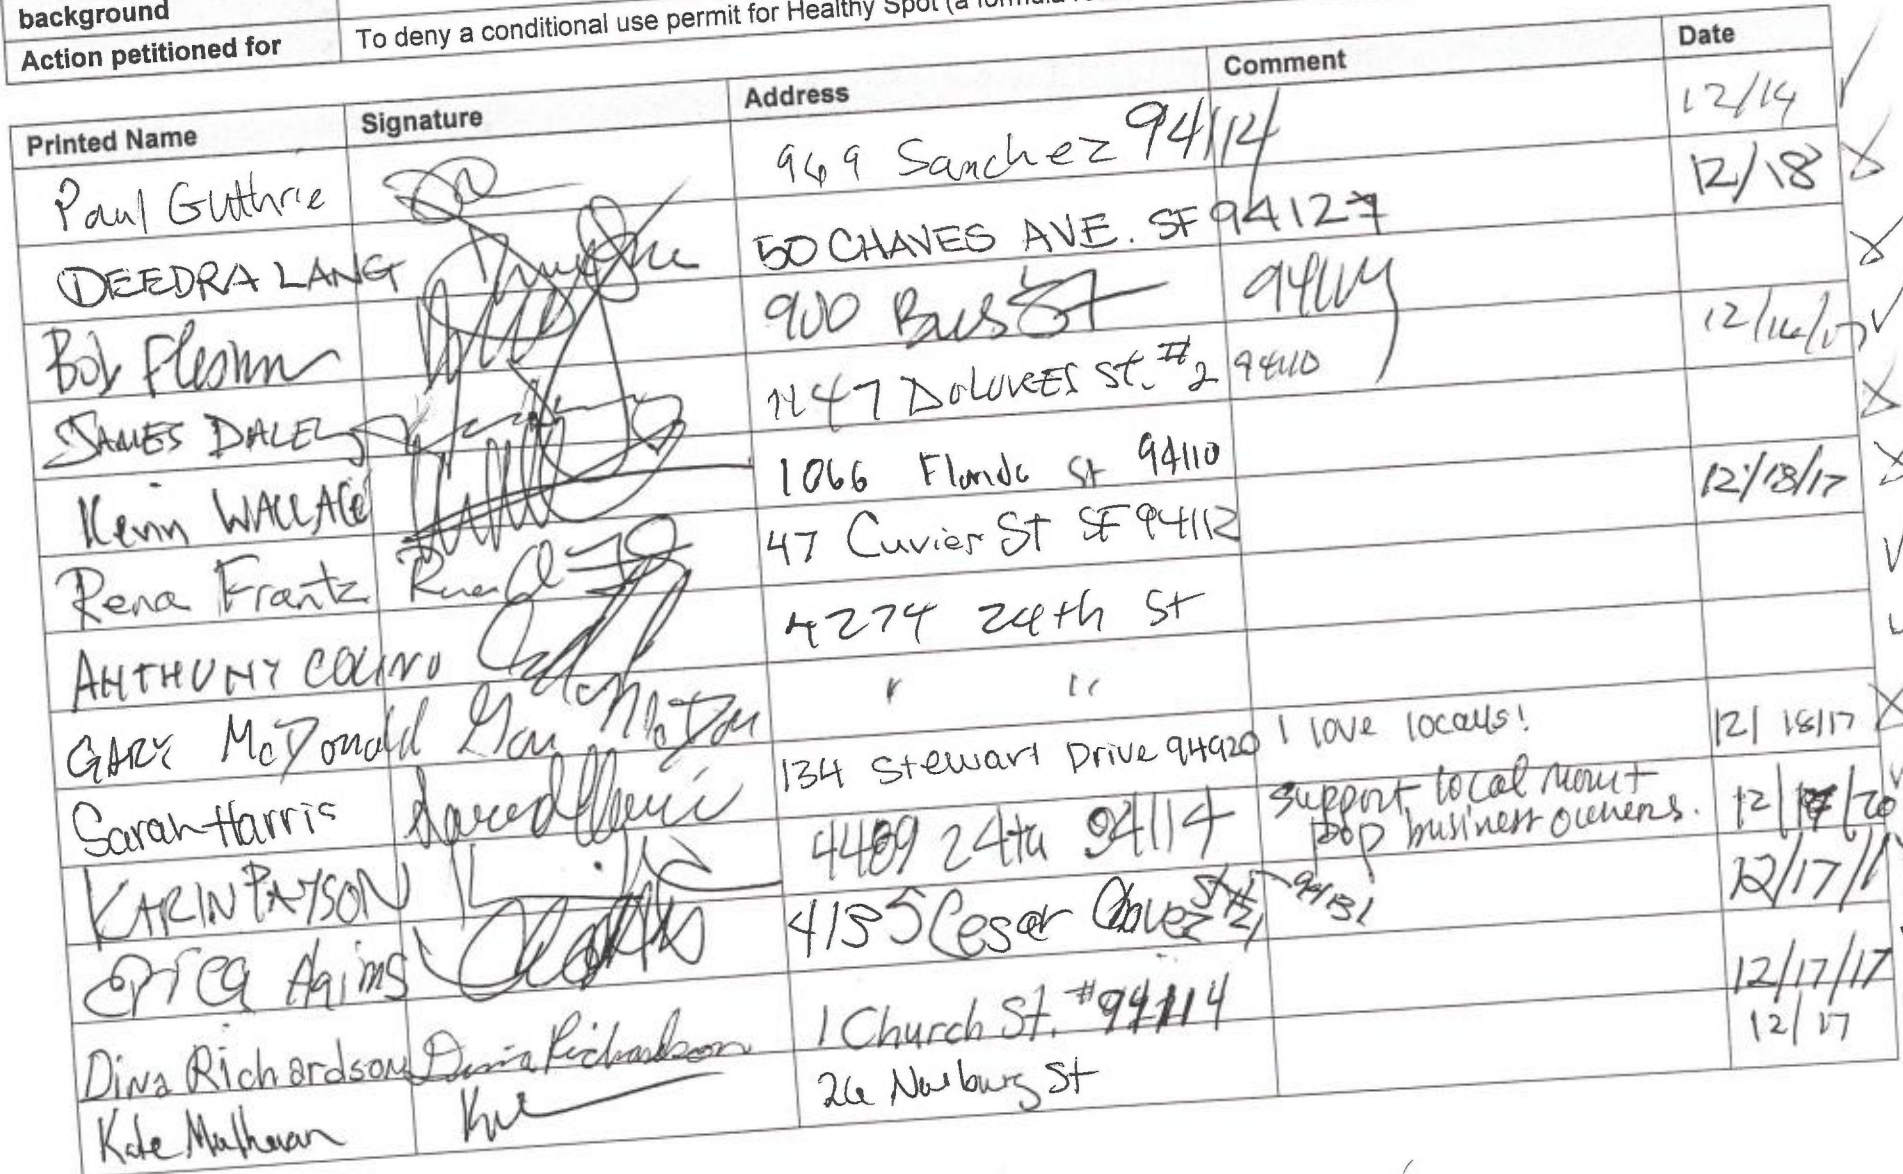 background
Action petitioned for To deny a conditional use permit for Healthy Spot (a formula
Printed Name Signature Address Comment Date
Paul Guthrie 969 Sanchez 94114 12/14
DEEDRA LANG 50 CHAVES AVE. SF 94127 12/18
Bob 900 94114
JAMES DALEY 1147 DOLORES St. #2 94110 12/16/17
Kevin WALLACE 1066 Florida St 94110
Rena Frantz 47 Cuvier St SF 94112 12/18/17
ANTHONY 4274 24th St
GARY McDonald " "
Sarah Harris 134 Stewart Drive 94920 I love locals! 12/18/17
KARIN PAYSON 4489 24th 94114 support local mom + pop business owners. 12/17/20
Erica 4155 Cesar Chavez St # 94131 12/17/1
Dina Richardson Dina Richardson 1 Church St. #94114 12/17/17
Kate 26 Newburg St 12/17